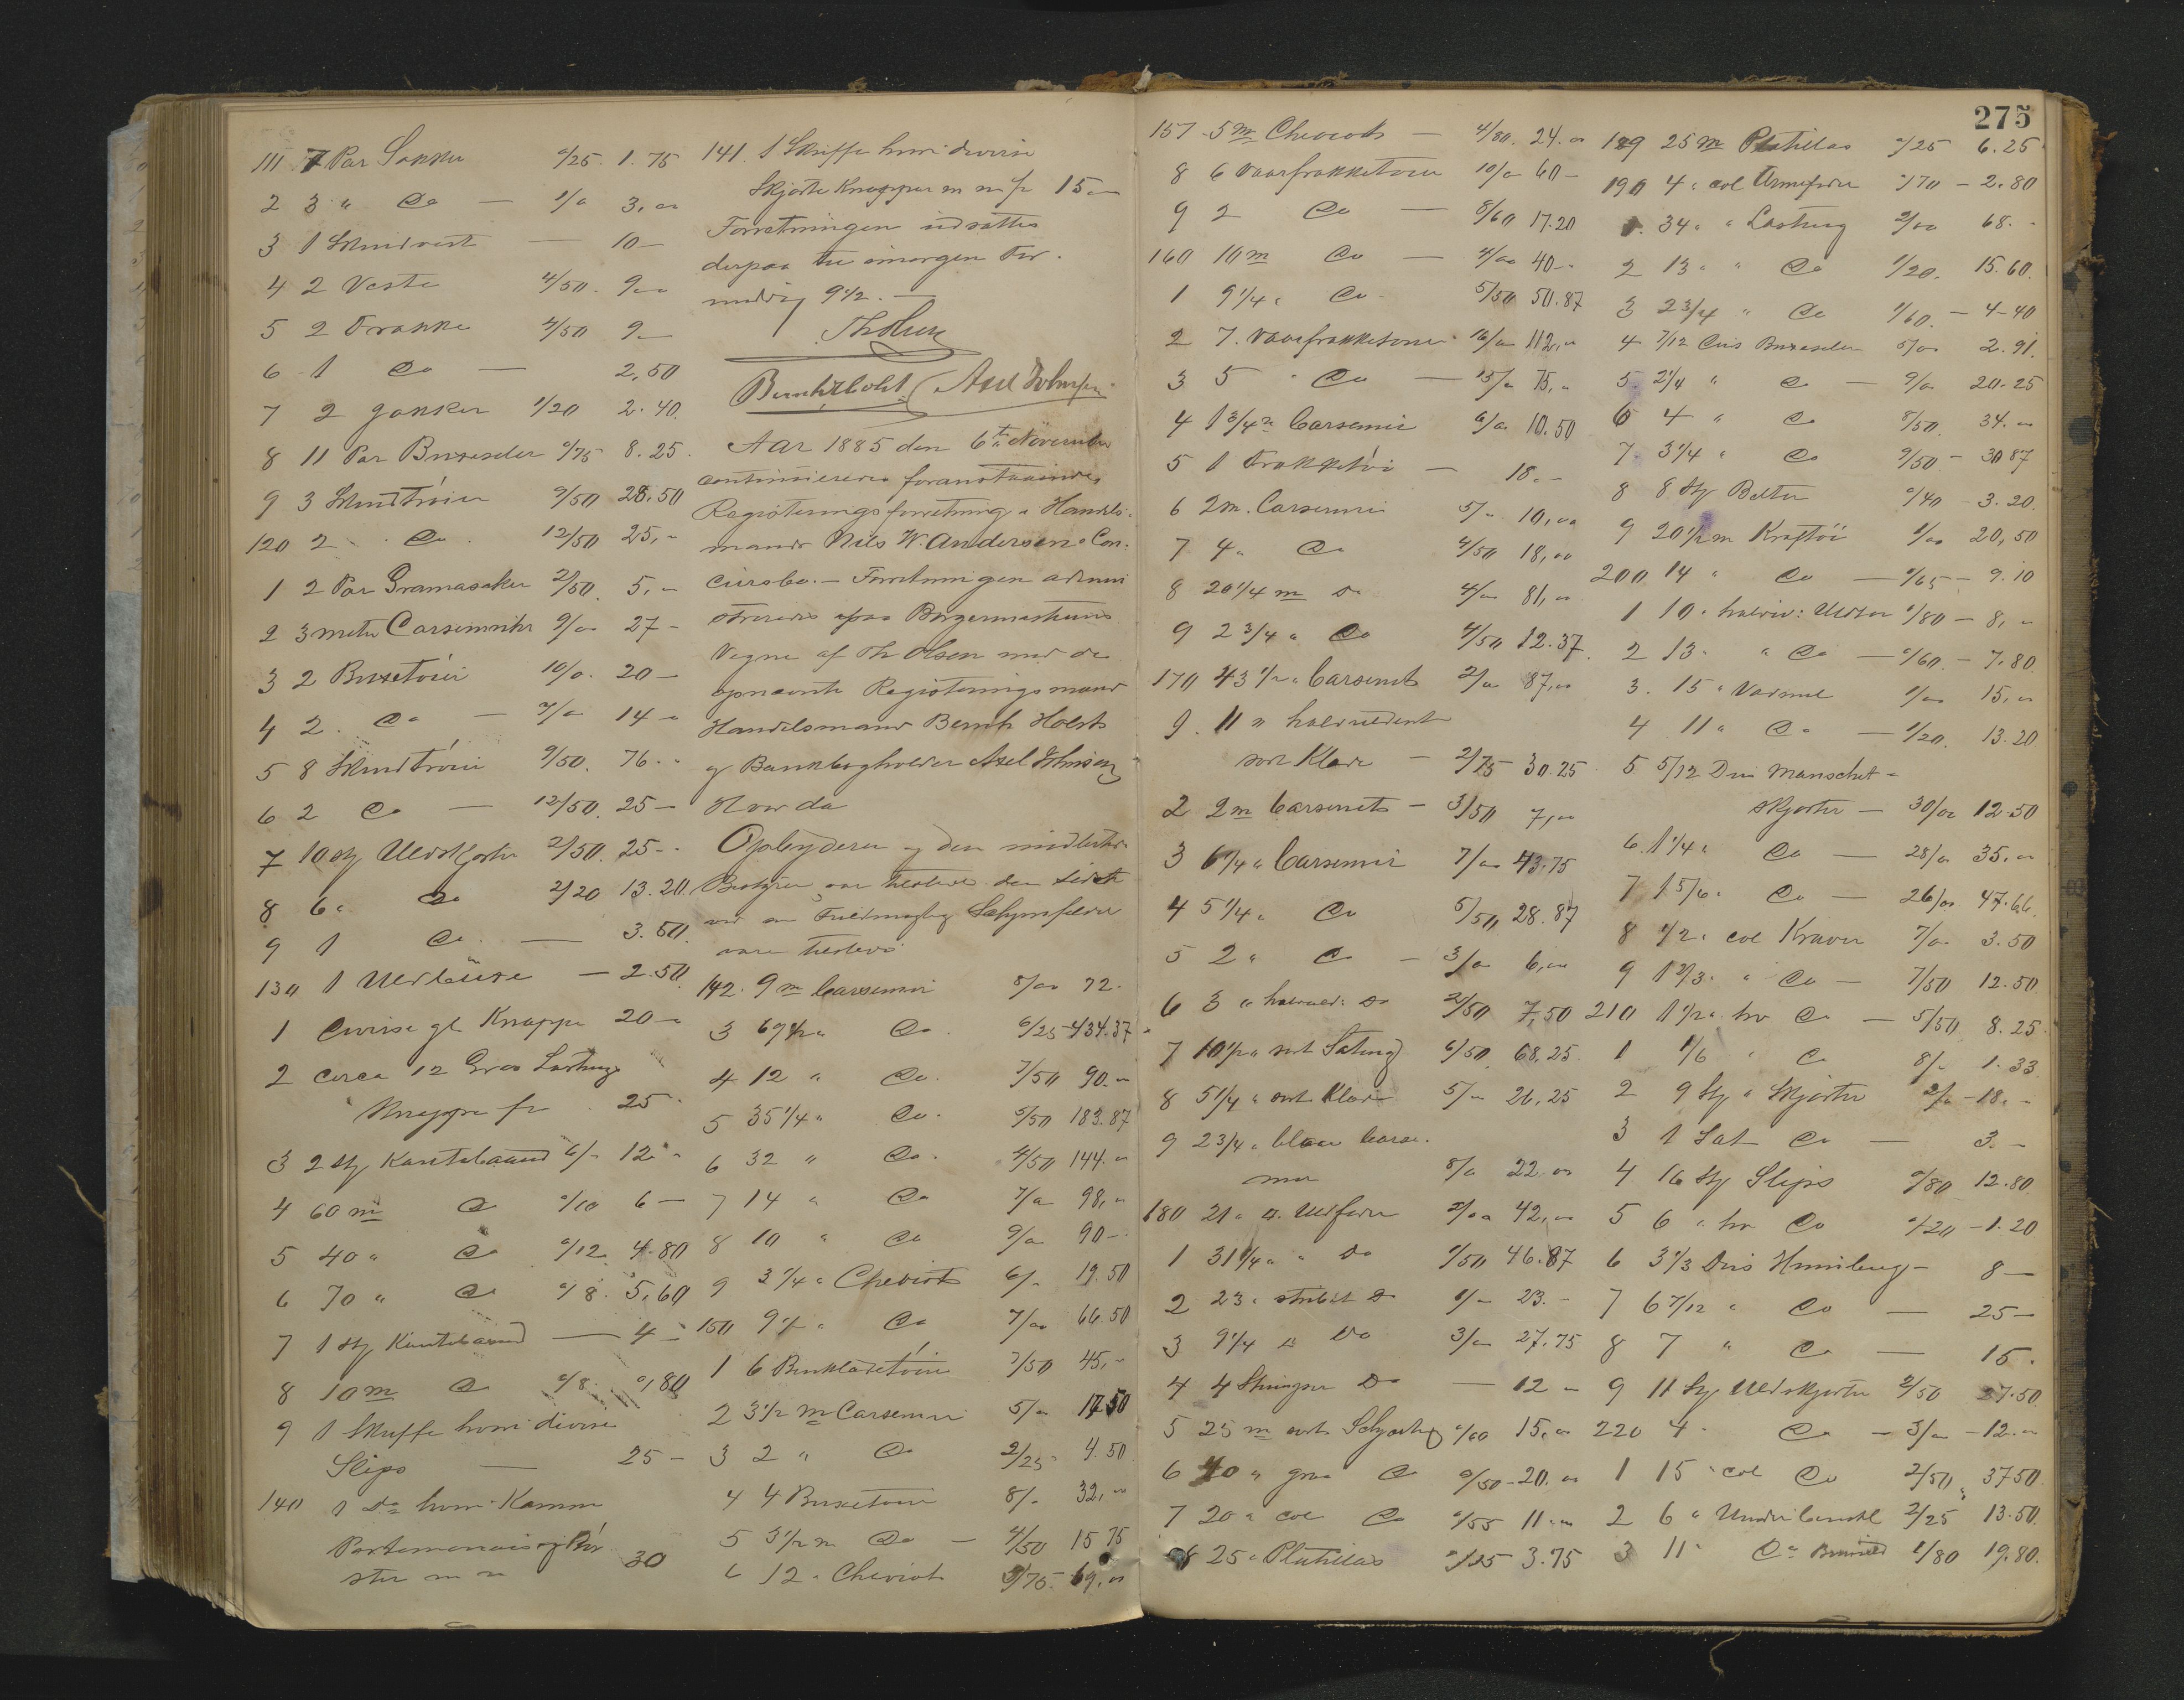 111 7 Par Sokker 0/25. 1.75
2 3 " Do — 1/o 3,00
3 1 Skindvest — 10—
4 2 Veste 4/50. 9—
5 2 Frakke 4/50 9—
6 1 Do — 2,50
7 2 Jakker 1/20 2.40.
8 11 Par Buxeseler 0/75 8.25.
9 3 Skindtrøier 9/50 28.50
120 2 Do 12/50 25,—
1 2 Par Gramascher 2/50. 5,—
2 3 meter Carsemirs 9/00 27—
3 2 Buxetøier 10/0. 20—
4 2. Do — 7/00 14—
5 8 Skindtrøier 9/50. 76.—
6 2 Do — 12/50. 25—
7 10 stj Uldskjorter 2/50. 25—
8 6 " Do 2/20 13.20
9 1 Do. — 3.50.
130 1 Uldbluse — 2.50.
1 Diverse gl Knapper 20—
2 circa 12 Gros Lasting
Knapper for 25.
3 2 stj Kantebaand 6/- 12—
4 60 m Do 0/10 6—
5 40 " Do 0/12. 4.80
6 70 " Do 0/8. 5,60
7 1 stj Kantebaand — 4—
8 10 m Do 0/8. 0,80
9 1 Skuffe hvori diverse
Slips — 25—
140 1 Do hvori Kamme
Portemonais og Bør
ster m m 30
141. 1 Skuffe hvori diverse
Skjorte Knapper m m fr 15—
Forretningen udsattes
derpaa til imorgen For-
middag 9 1/2. —
Th Olsen
Bernh Holst. Axel Johnsen
Aar 1885 den 6te November
continueredes foranstaaende
Registreringsforretning i Handels-
mand Nils W. Andersens Con-
cursbo. — Forretningen admini
streredes paa Borgermesterens
Vegne af Th Olsen med de
opnævnte Registreringsmænd
Handelsmand Bernh Holst
og Bankbogholder Axel Johnsen
Hvor da
Opbyderen og den midlertidige
Bestyrer var tilstede den sidste
ved en Fuldmægtig
vare tilstede
142. 9 m Carsemir 8/00 72.
3 69 1/2 " Do. 6/25 434.37
4 12 " Do. 7/50 90.—
5 35 1/4 " Do. 5/50 183.87
6 32 " Do. 4/50 144.—
7 14 " Do 7/00 98,—
8 10 " Do 9/00 90—
9 3 1/4 " Cheviots 6/- 19.50
150 9 1/2 " Do 7/00 66.50
1 6 Benklædetøier 7/50 45,—
2 3 1/2 m Carsemir 5/00 17.50
3 2 " Do 2/25 4.50
4 4 Buxetøier 8/- 32,00
5 3 1/2 m Do — 4/50 15 75
6 12 " Cheviots 5/75. 69,00
275
157 5 m Cheviots — 4/80. 24.00
8 6 Vaarfrakketøier 10/00 60—
9 2 Do — 8/60 17.20
160 10 m Do — 4/00 40—
1 9 1/4 " Do. 5/50 50.87
2 7. Vaarfrakketøier 16/00 112,00
3 5 " Do — 15/00 75,—
4 1 3/4 m Carsemir 6/00 10.50
5 1 Frakketøi — 18.—
6 2 m. Carsemir 5/- 10,00
7 4 " Do 4/50 18,00
8 20 1/4 m Do 4/00 81,00
9 2 3/4 " Do 4/50 12.37.
170 43 1/2 " Carsemets 2/00 87,00
9. 11 " halvuldent
sort Klæde — 2/75 30.25
2 2 m Carsemets — 3/50 7,00
3 6 1/4 " Carsemir 7/00 43,75
4 5 1/4 " Do 5/50 28.87
5 2 " Do — 3/00 6,00
6 3 " halvuld. Do 2/50 7,50
7 10 1/2 " sort Satung 6/50. 68.25.
8 5 1/4 " sort Klæde 5/- 26,25
9 2 3/4 " blaae Carse-
mir 8/0 22.00
180 21 " u. Uldfoder 2/00 42,00
1 31 1/4 " " Do 1/50 46.87
2 23 " stribet Do 1/- 23.—
3 9 1/4 " Do 3/00 27.75
4 4 Do — 12—
5 25 m sort Schjorting 0/60 15,00
6 40 " graa Do 0/50 20.00
7 20 " col Do 0/55 11.00
88 25 " Platillas 0/15 3.75
189 25 m Platillas 0/25 6.25
190 4 " col Ærmefoder 0/70 — 2.80
1. 34 " " Lasting 2/00 68.—
2 13 " " Do 1/20. 15.60.
3 2 3/4 " Do 1/60. — 4-40
4 7/12 Duis Buxeseler 5/00 2.91.
5. 2 1/4 " Do — 9/00 20.25
6 4 " Do 8/50. 34.00
7 3 1/4 " Do 9/50 — 30 87
8 8 Stj Belter 0/40 3.20.
9 20 1/2 m Kraftøi 1/00 20,50
200. 14 " Do — 0/65 — 9.10
1 10 " halvv: Uldtøi 0/80 — 8,—
2 13 " " Do — 0/60. — 7.80
3. 15 " Vadmel 1/00 15,00
4 11 " Do — 1/20. 13.20
5 5/12 Dui Manschet-
skjorter — 30/00 12.50
6. 1 1/4 " Do — 28/00 35,00
7 1 5/6 " Do — 26/00 47.66.
8 1/2 " col Kraver 7/00 3.50
9 1 2/3 " " Do — 7/50 12.50.
210 1 1/2 " hv Do — 5/50. 8.25.
1 1/6 " Do 8/- 1.33
2 9 Stj " Skjorter 2/00 — 18.—
3 1 Sat Do — 3.—
4 16 Stj Slips 0/80 12.80.
5 6 " hv Do 0/20 — 1.20
6 3 1/3 Duis — 8—
7 6 7/12 " Do — 25—
8 7 " Do — 15.
9 11 Stj Uldskjorter 2/50 27.50.
220 4 " Do — 3/00 — 12.00
1 15 " col Do 2/50. 37.50
2 6 " Underbenkl 2/25 13.50.
3 11 " Do Bomuld 1/80 19.80.